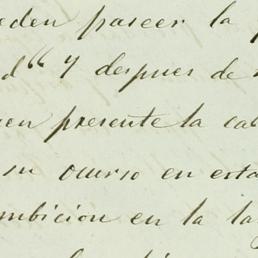 eden pascer la
d" y despues de
en presente la ca
su ocurso en esta
mbicion en la la